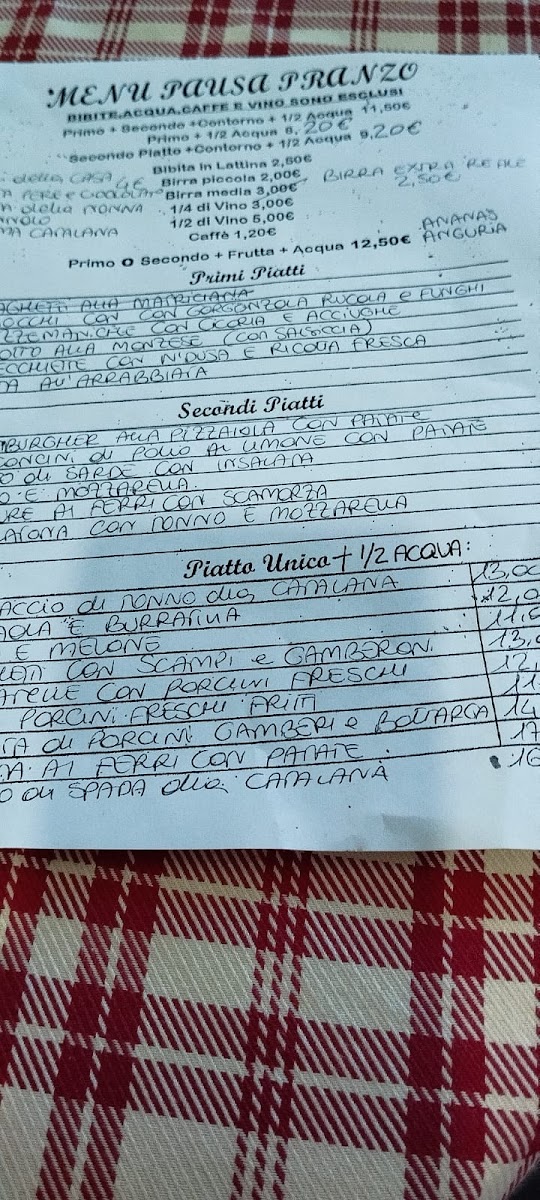 MENU PAUSA PRANZO
BIBITE,ACQUA,CAFFE E VINO SONO ESCLUSI
Primo + Secondo +Contorno + 1/2 Acqua 11,50€
Primo + 1/2 Acqua 8,20€
Secondo Piatto +Contorno + 1/2 Acqua 9,20€
Bibita in Lattina 2,50€
della CASA 4€ Birra piccola 2,00€ BIRRA EXTRA REALE 2,50€
PERE e CIOCCOLATO Birra media 3,00€
della NONNA 1/4 di Vino 3,00€
1/2 di Vino 5,00€
CATALANA Caffè 1,20€
ANANAS
Primo O Secondo + Frutta + Acqua 12,50€ ANGURIA
Primi Piatti
AGHETTI ALLA MATRICIANA
OCCHI CON CON GORGONZOLA RUCOLA e FUNGHI
ZZEMANICHE CON CICORIA E ACCIUGHE
OTTO ALLA MONZESE (CON SALSICCIA)
ECCHIETTE CON N'DUJA E RICOTTA FRESCA
ALL'ARRABBIATA
Secondi Piatti
MBURGHER ALLA PIZZAIOLA CON PATATE
CONCINI di POLLO AL LIMONE CON PATATE
O di SARDE CON INSALATA
O E MOZZARELLA
URE AI FERRI CON SCAMORZA
CON TONNO E MOZZARELLA
Piatto Unico + 1/2 ACQUA:
ACCIO di TONNO alla CATALANA 13,00
AOLA E BURRATINA 12,0
E MELONE 11,0
CON SCAMPI e GAMBERONI 13,
ATELLE CON PORCINI FRESCHI 12,
PORCINI FRESCHI FRITTI 11
di PORCINI GAMBERI e BOTTARGA 14
TA AI FERRI CON PATATE 17
O di SPADA alla CATALANA 16